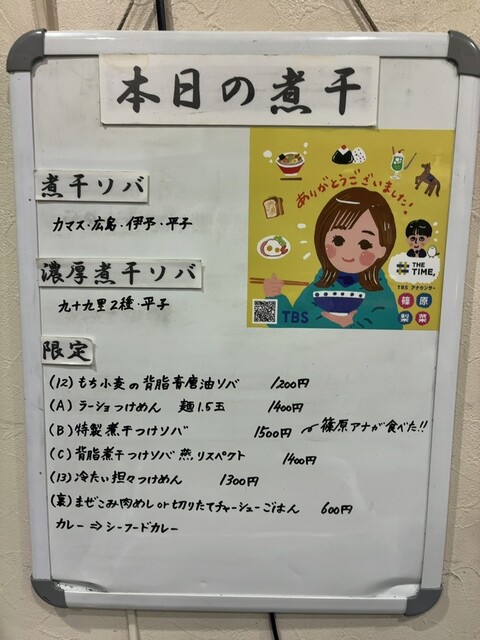 本日の煮干
煮干ソバ
カマス・広島・伊予・平子
濃厚煮干ソバ
九十九里2種・平子
ありがとうございました!
# THE TIME,
TBS アナウンサー
篠原
梨菜
TBS
限定
(12) もち小麦の背脂醤油ソバ 1200円
(A) ラーショつけめん 麺1.5玉 1400円
(B) 特製煮干つけソバ 1500円 ← 篠原アナが食べた!!
(C) 背脂煮干つけソバ 燕リスペクト 1400円
(13) 冷たい担々つけめん 1300円
(裏) まぜこみ肉めし or 切りたてチャーシューごはん 600円
カレー ⇒ シーフードカレー